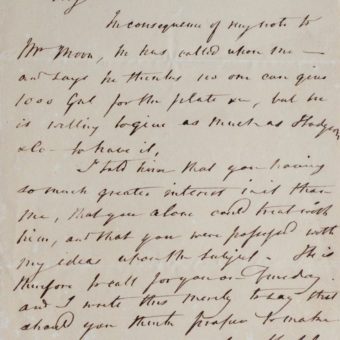 In consequence of my note to
Mr Moon, he has called upon me —
and says he thinks no one can give
1000 Gns for the plate &c, but he
is willing to give as much as Hodgson
&Co— to have it,
I told him that you having
so much greater interest in it than
me, that you alone could treat with
him, and that you were possessed with
my ideas upon the subject. He is
therefore to call for you on Tuesday.
and I write this merely to say that
should you think proper to make